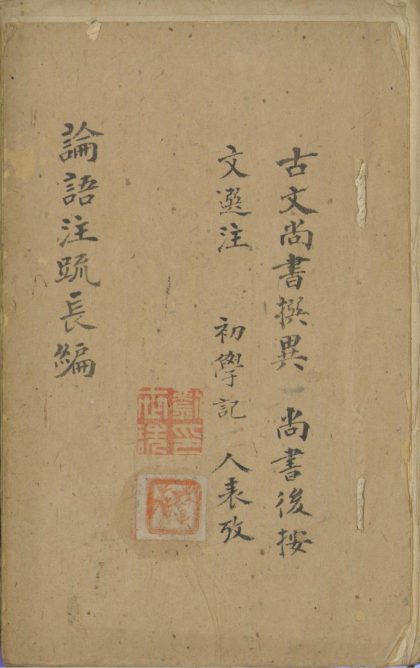 古文尚書撰異 尚書後按
文選注 初學記 人表攷
論語注疏長編